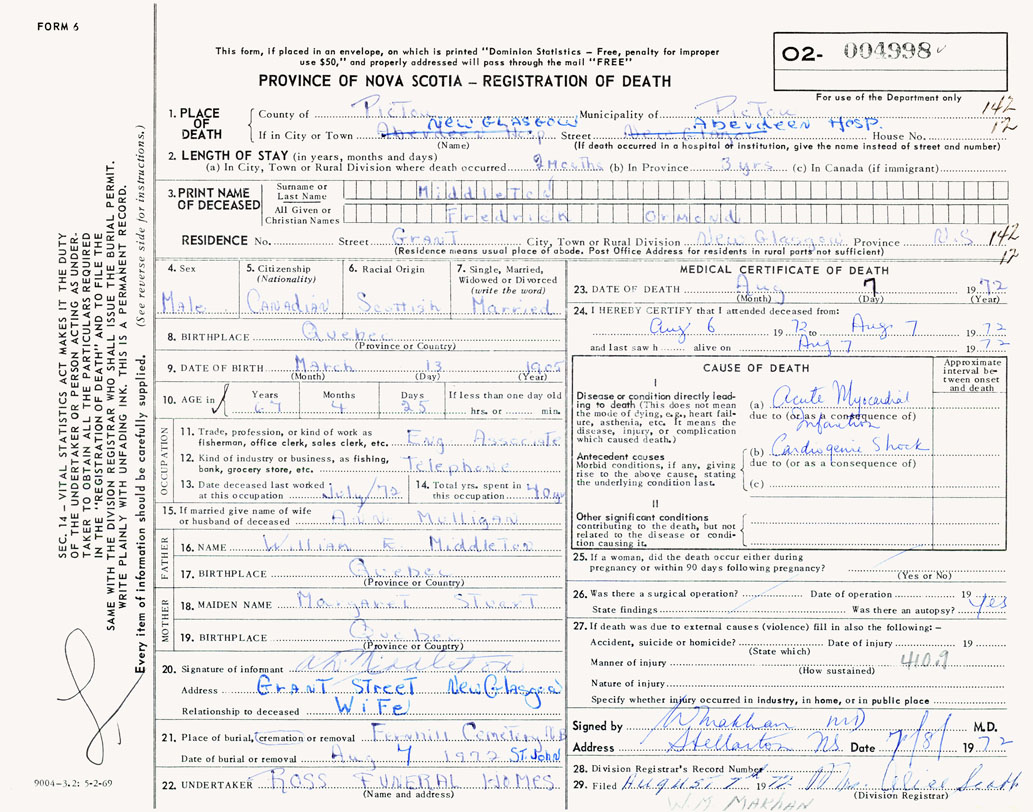 FORM 6
This form, if placed in an envelope, on which is printed "Dominion Statistics – Free, penalty for improper
use $50," and properly addressed will pass through the mail "FREE"
PROVINCE OF NOVA SCOTIA – REGISTRATION OF DEATH
O2- 004998
For use of the Department only
1. PLACE OF DEATH
County of Pictou Municipality of Pictou 142
If in City or Town Aberdeen Hosp New Glasgow Street New Glasgow Aberdeen Hosp House No. 12
(Name) (If death occurred in a hospital of institution, give the name instead of street and number)
2. LENGTH OF STAY (in years, months and days)
(a) In City, Town or Rural Division where death occurred 2 Months (b) In Province 3 yrs (c) In Canada (if immigrant)
3. PRINT NAME OF DECEASED
Surname or Last Name Middleton
All Given or Christian Names Fredrick Ormond
RESIDENCE No. Street Grant City, Town or Rural Division New Glasgow Province N.S 142
(Residence means usual place of abode. Post Office Address for residents in rural parts not sufficient) 12
4. Sex Male
5. Citizenship (Nationality) Canadian
6. Racial Origin Scottish
7. Single, Married, Widowed or Divorced (write the word) Married
8. BIRTHPLACE Quebec
(Province or Country)
9. DATE OF BIRTH March 13 1905
(Month) (Day) (Year)
10. AGE in Years 67 Months 4 Days 25 If less than one day old hrs. or min.
OCCUPATION
11. Trade, profession, or kind of work as fisherman, office clerk, sales clerk, etc. Eng Associate
12. Kind of industry or business, as fishing, bank, grocery store, etc. Telephone
13. Date deceased last worked at this occupation July/72
14. Total yrs. spent in this occupation 40 yrs
15. If married give name of wife or husband of deceased Ann Mulligan
FATHER
16. NAME William E Middleton
17. BIRTHPLACE Quebec
(Province or Country)
MOTHER
18. MAIDEN NAME Margaret Stuart
19. BIRTHPLACE Quebec
(Province or Country)
20. Signature of informant Middleton
Address Grant Street New Glasgow
Relationship to deceased Wife
21. Place of burial, cremation or removal Fernhill Cemetery N.B
Date of burial or removal Aug 1972 St. John
22. UNDERTAKER Ross Funeral Homes
(Name and address)
MEDICAL CERTIFICATE OF DEATH
23. DATE OF DEATH Aug 7 1972
(Month) (Day) (Year)
24. I HEREBY CERTIFY that I attended deceased from:
Aug 6 1972 to Aug. 7 1972
and last saw h alive on Aug 7 1972
CAUSE OF DEATH
Approximate interval between onset and death
I
Disease or condition directly leading to death (This does not mean the mode of dying, e.g., heart failure, asthenia, etc. It means the disease, injury, or complication which caused death.)
(a) Acute Myocardial Infarction
due to (or as a consequence of)
Antecedent causes
Morbid conditions, if any, giving rise to the above cause, stating the underlying condition last.
(b) Cardiogenic Shock
due to (or as a consequence of)
(c)
II
Other significant conditions
contributing to the death, but not related to the disease or condition causing it.
25. If a woman, did the death occur either during
pregnancy or within 90 days following pregnancy?
(Yes or No)
26. Was there a surgical operation? Date of operation 19
State findings Was there an autopsy? Yes
27. If death was due to external causes (violence) fill in also the following: –
Accident, suicide or homicide? Date of injury 19
(State which)
Manner of injury 410.9
(How sustained)
Nature of injury
Specify whether injury occurred in industry, in home, or in public place
Signed by W Makhan MD M.D.
Address Stellarton NS. Date 7/8/ 1972
28. Division Registrar's Record Number
29. Filed August 7th 1972 Mrs. Alice Scott
(Division Registrar)
W.M MAKHAN
SEC. 14 – VITAL STATISTICS ACT MAKES IT THE DUTY
OF THE UNDERTAKER OR PERSON ACTING AS UNDER-
TAKER TO OBTAIN ALL THE PARTICULARS REQUIRED
IN THE "REGISTRATION OF DEATH" AND TO FILE THE
SAME WITH THE DIVISION REGISTRAR WHO SHALL ISSUE THE BURIAL PERMIT.
WRITE PLAINLY WITH UNFADING INK. THIS IS A PERMANENT RECORD.
Every item of information should be carefully supplied. (See reverse side for instructions.)
9004-3.2: 5-2-69